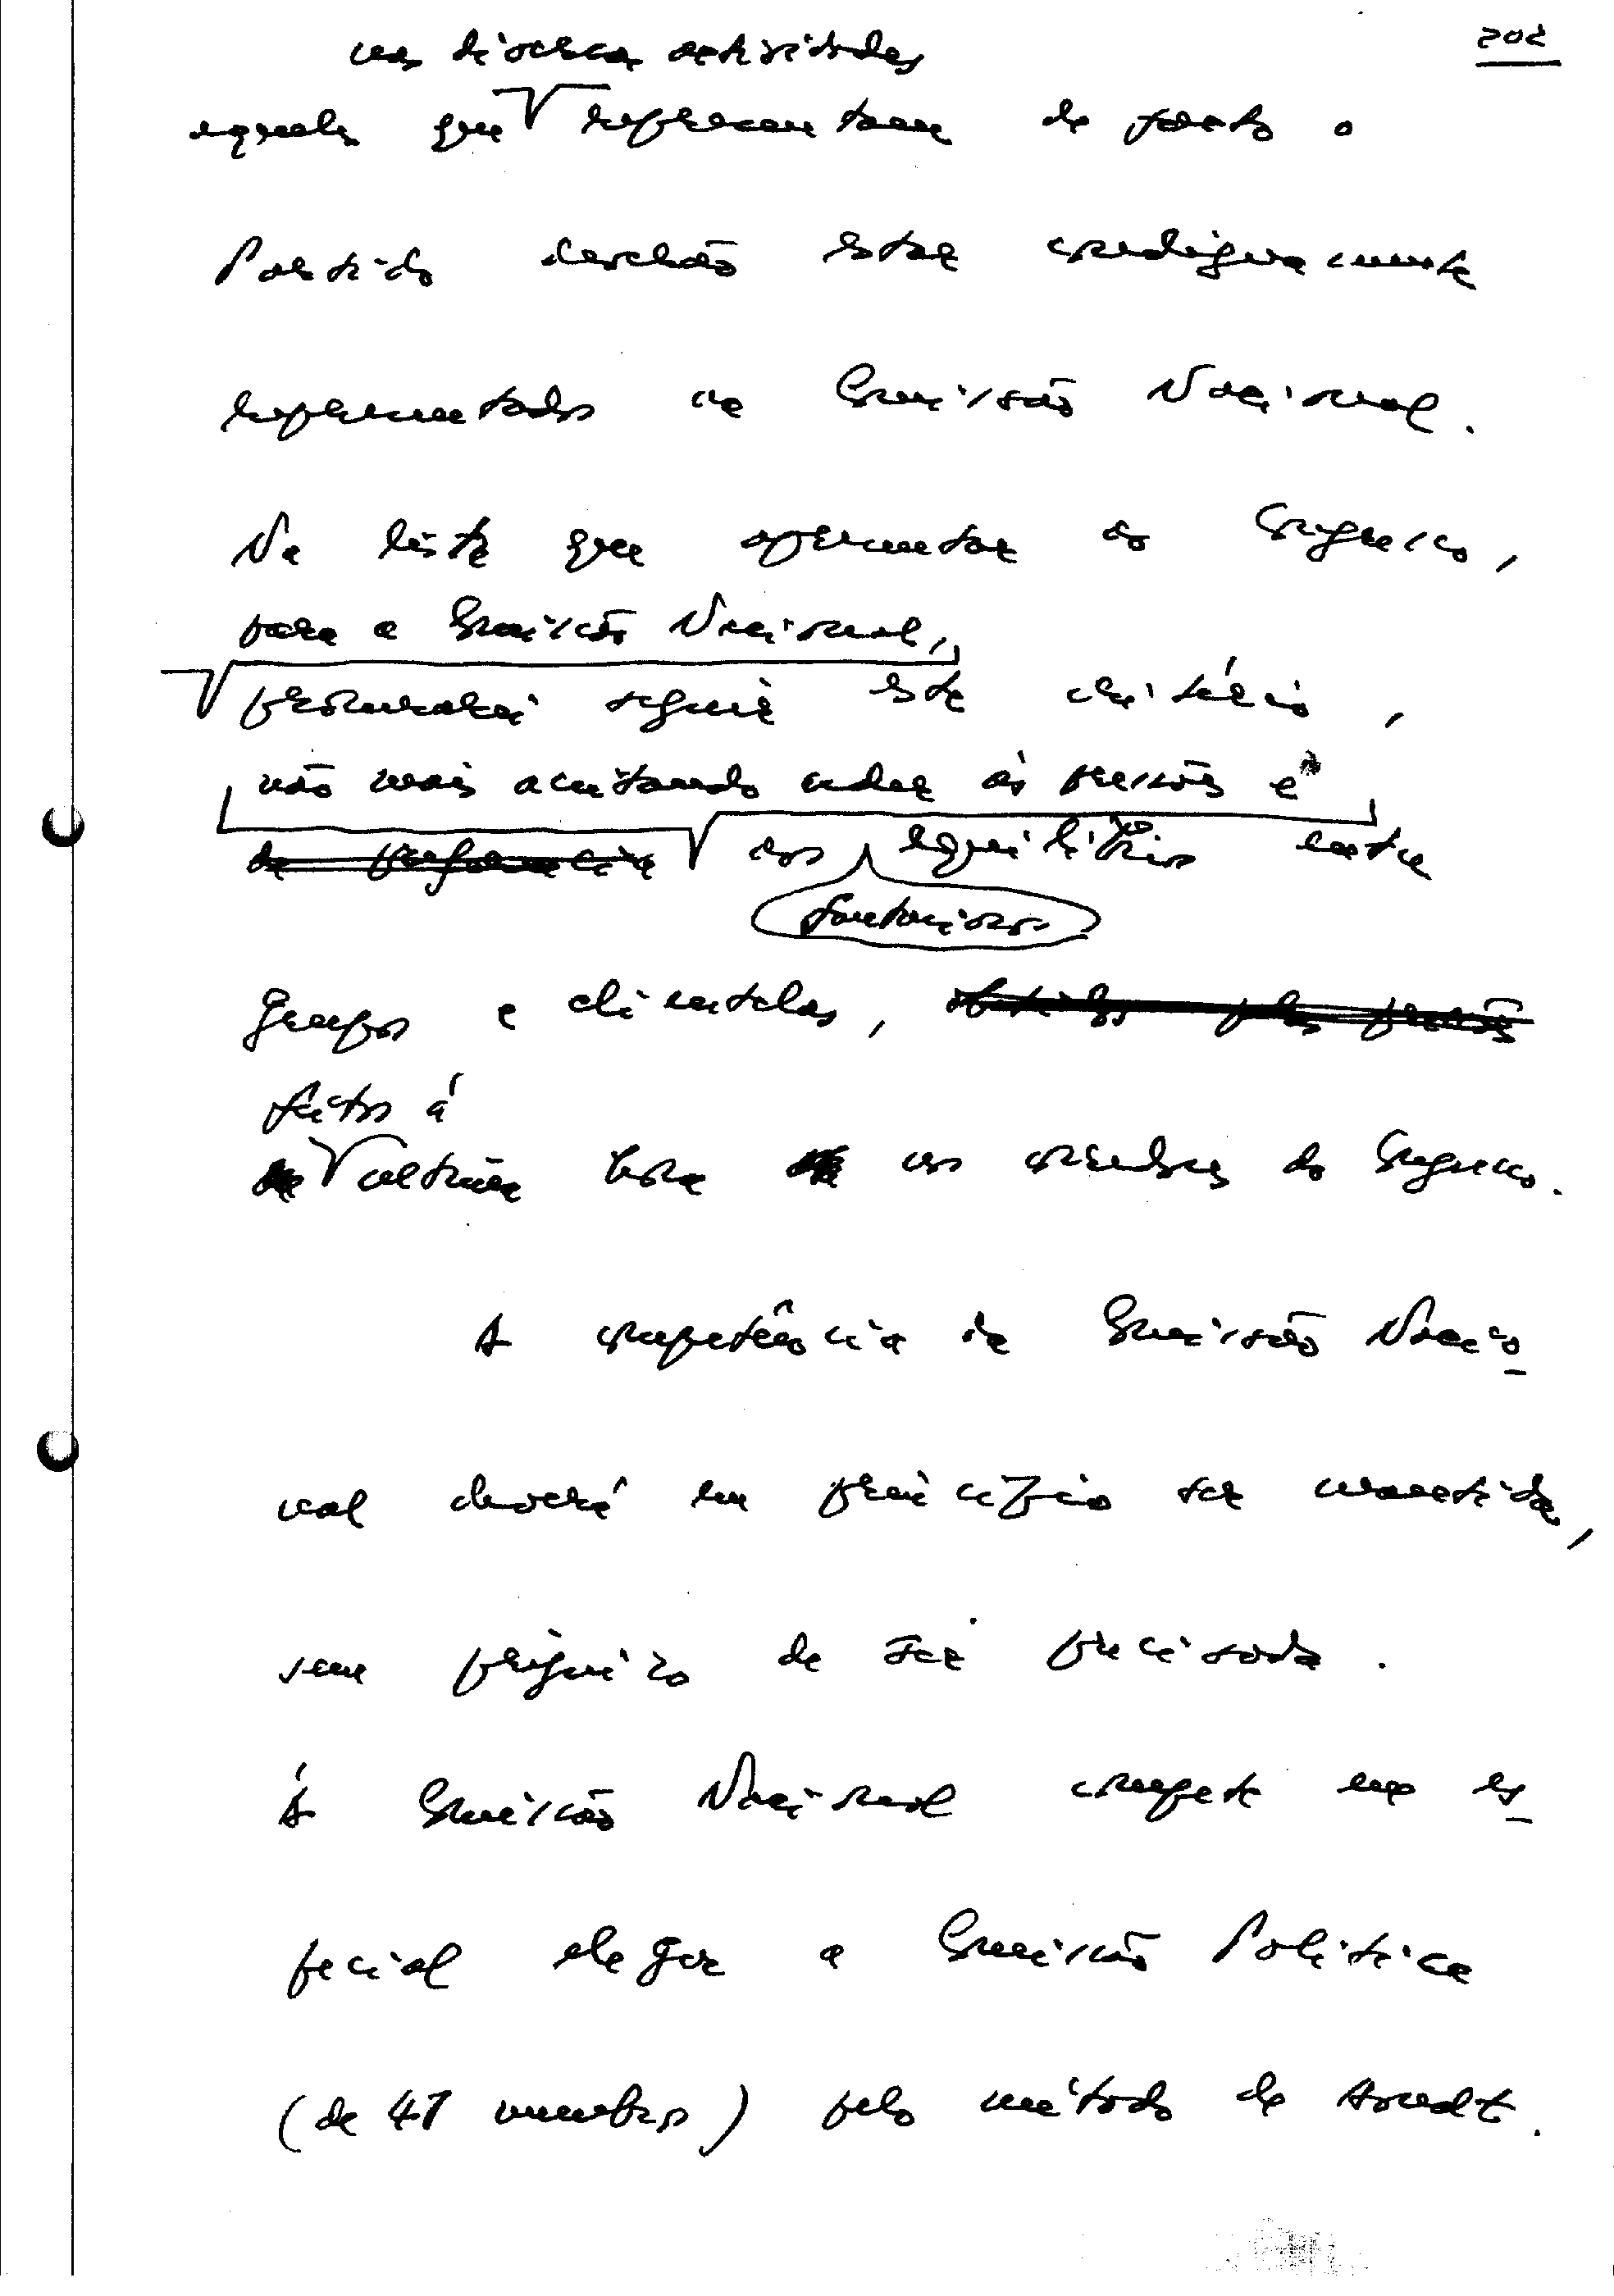 202
nas diversas actividades
aqueles que representam de facto o
Partido deverão estar condignamente
representados na Comissão Nacional.
Na lista que apresentar ao Congresso,
para a Comissão Nacional,
procurarei seguir este critério,
não mais aceitando ceder às pressões e
de preferência aos equilíbrios entre
fantasiosos
grupos e clientelas, obtidos pelas pressões
feitos à
última hora nos corredores do Congresso.
A competência da Comissão Nacio
nal deverá em princípio ser mantida,
sem prejuízo de ser precisada.
À Comissão Nacional compete em es
pecial eleger a Comissão Política
(de 47 membros) pelo método de Hondt.